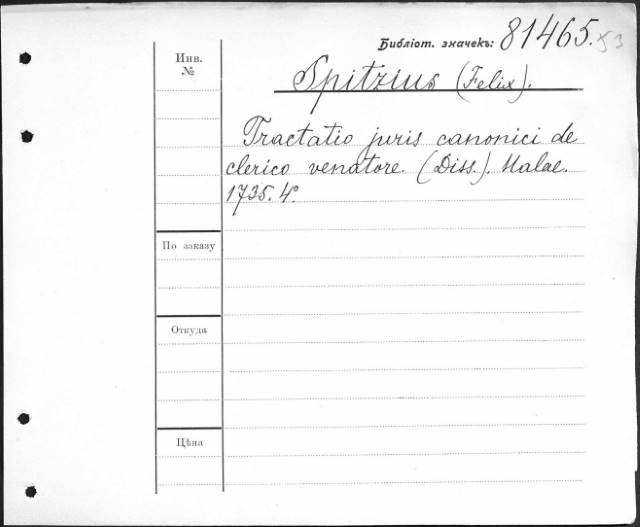 Библіот. значекъ: 81465. 53
Инв. №
Spitzius (Felix).
Tractatio juris canonici de
clerico venatore. (Diss.). Halae.
1735. 4º.
По заказу
Откуда
Цѣна